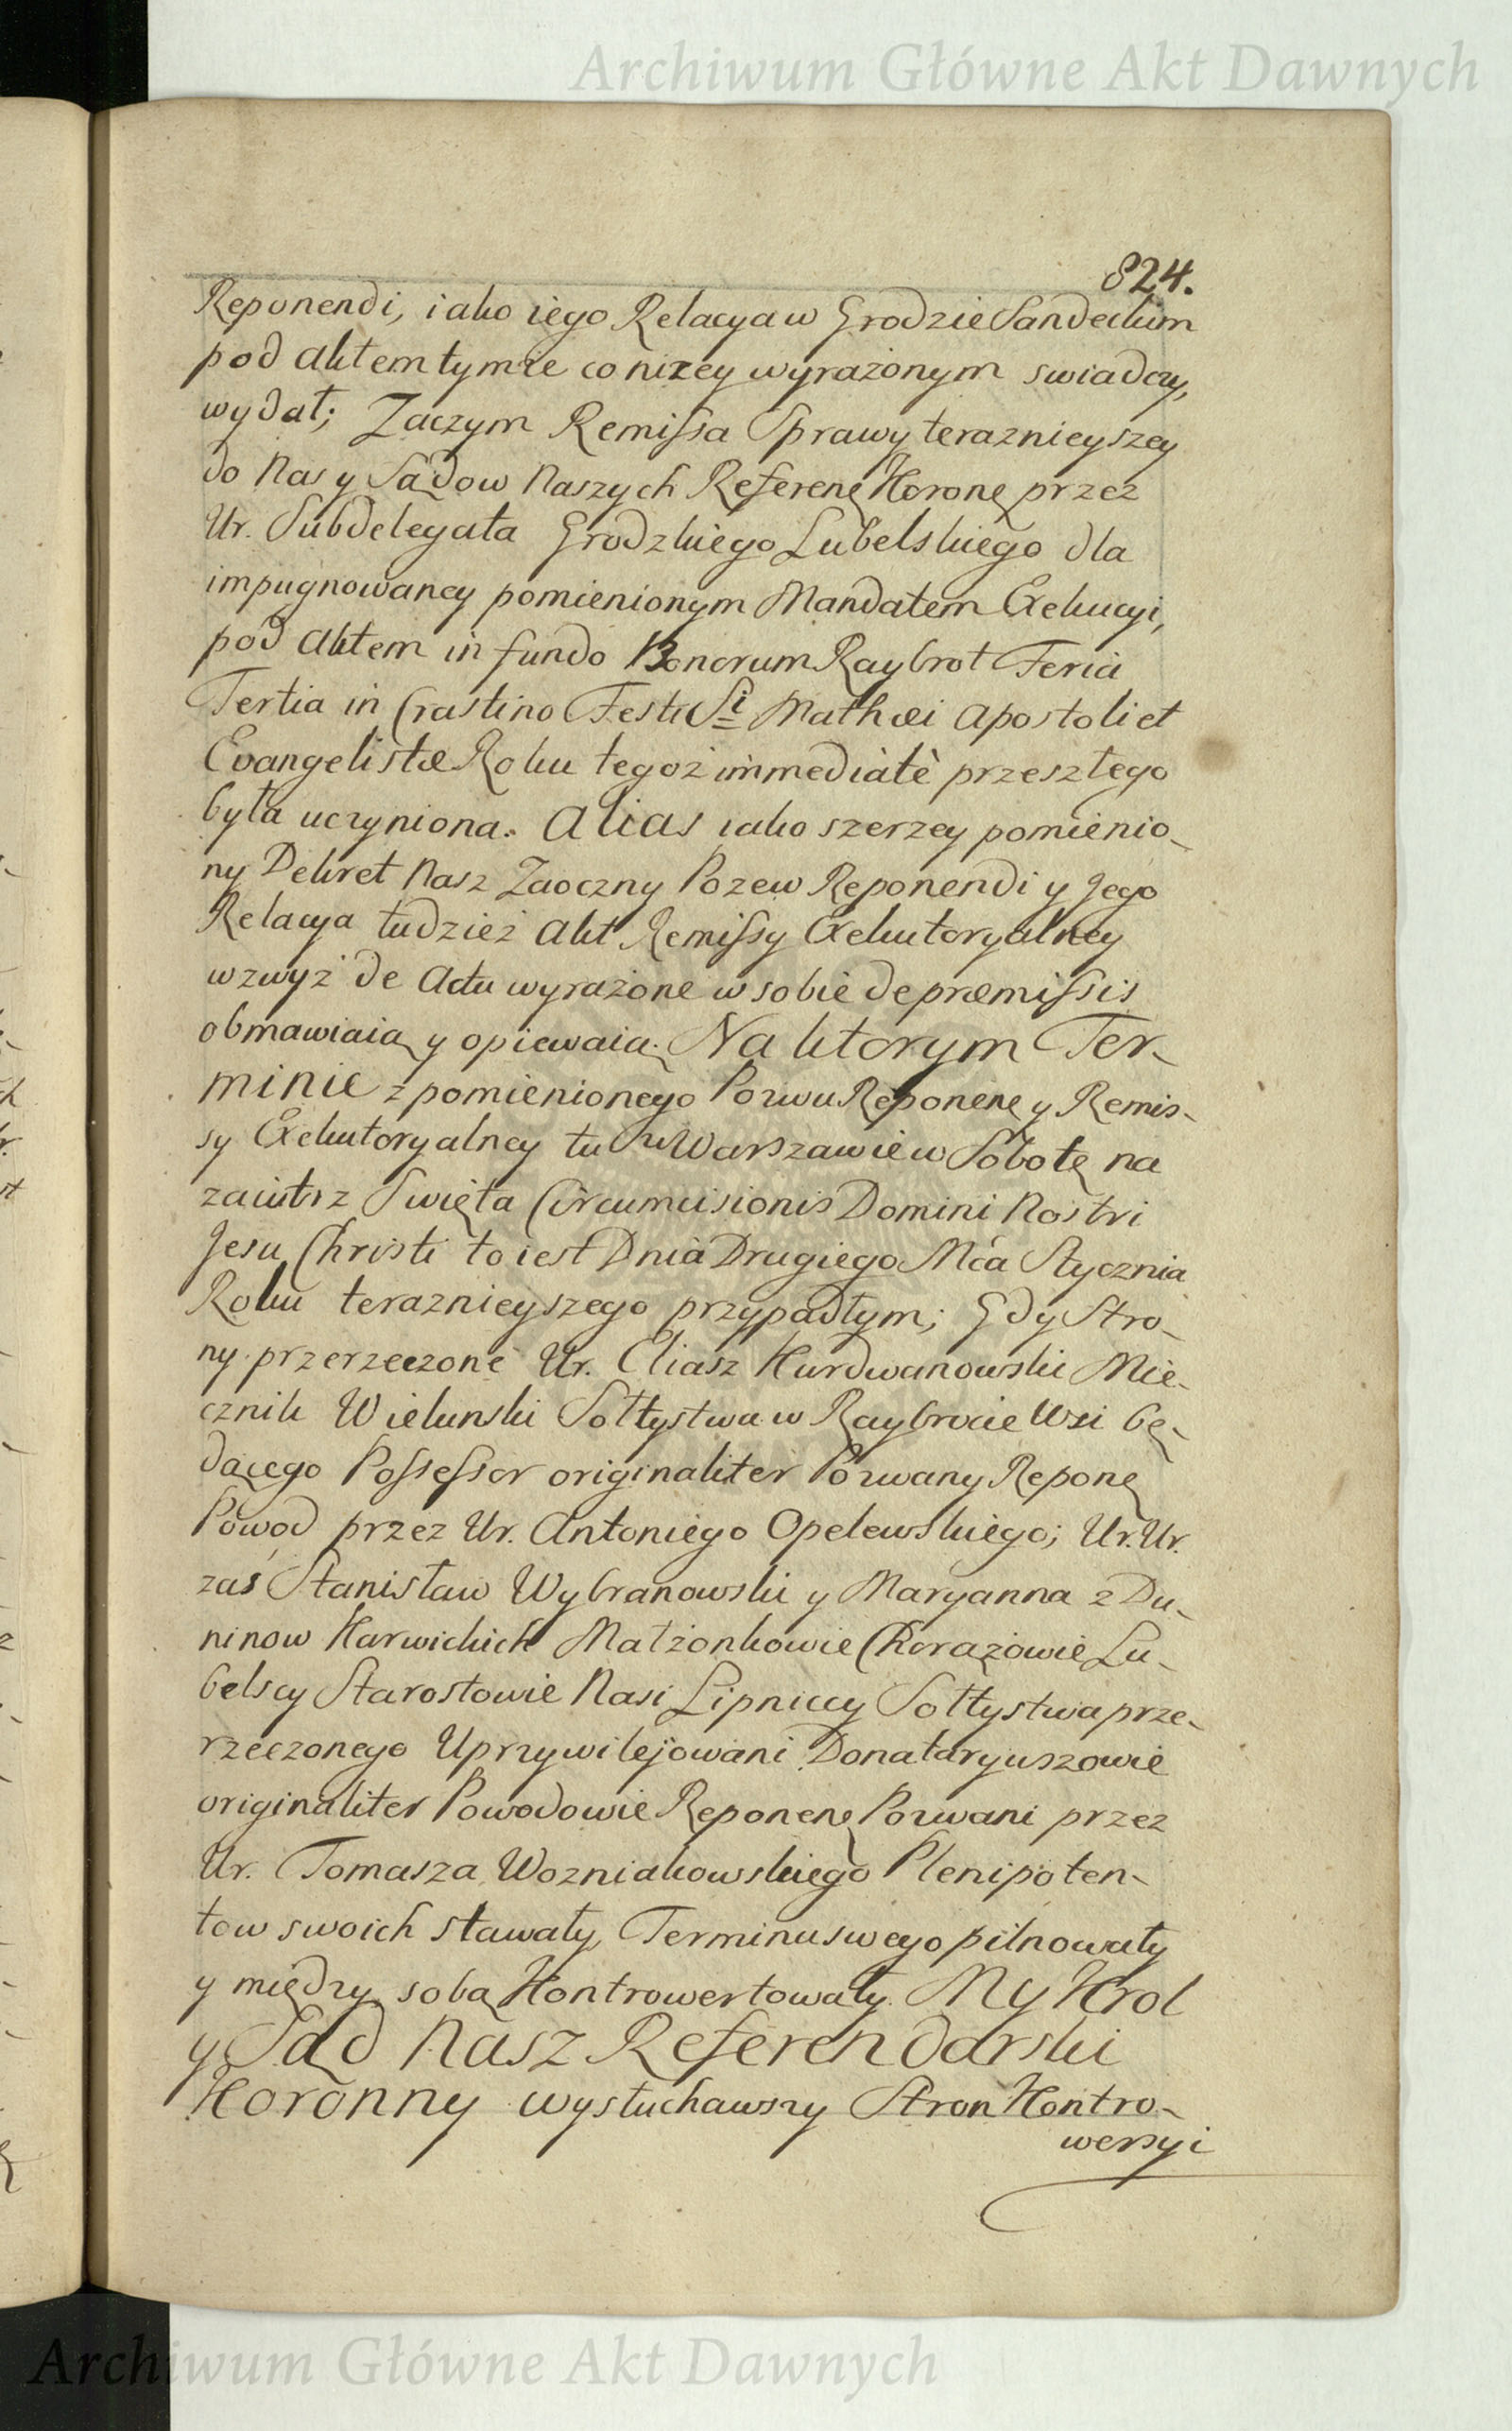 Archiwum Główne Akt Dawnych
824.
Reponendi, iako iego Relacya w Grodzie Sandeckim
pod Aktem tymże co niżey wyrażonym swiadczy,
wydał; Zaczym Remissa Sprawy teraznieyszey
do Nas y Sądow Naszych Referenę Koronę przez
Ur. Subdelegata Grodzkiego Lubelskiego dla
impugnowaney pomienionym Mandatem Exekucyi,
pod Aktem in fundo Bonorum Raybrot Feria
Tertia in Crastino Festi Si Mathæi Apostoli et
Evangelistæ Roku tegoż immediatè przeszłego
była uczyniona. Alias iako szerzey pomienio-
ny Dekret Nasz Zaoczny Pozew Reponendi y Jego
Relacya tudzież Akt Remissy Exekutoryalney
wzwyż de Actu wyrażone w sobie de præmissis
obmawiaią y opiewaią. Na ktorym Ter-
minie z pomienionego Pozwu Reponenę y Remis-
sy Exekutoryalney tu w Warszawie w Sobotę na
zaiutrz Swięta Circumcisionis Domini Nostri
Jesu Christi to iest Dnia Drugiego Mca Stycznia
Roku teraznieyszego przypadłym; Gdy Stro-
ny przerzeczone Ur. Eliasz Hurdwanowski Mie-
cznik Wielunski Sołtystwa w Raybrocie Wsi bę-
dącego Possessor originaliter Pozwany Reponę
Powod przez Ur. Antoniego Opelewskiego; Ur. Ur.
zaś Stanisław Wybranowski y Maryanna z Du-
ninow Karwickich Małżonkowie Chorążowie Lu-
belscy Starostowie Nasi Lipniccy Sołtystwa prze-
rzeczonego Uprzywilejowani Donataryuszowie
originaliter Powodowie Reponenę Pozwani przez
Ur. Tomasza Wozniakowskiego Plenipoten-
tow swoich stawały, Terminu swego pilnowały
y między sobą Kontrowertowały. My Krol
y Sąd Nasz Referendarski
Koronny wysłuchawszy Stron Kontro-
wersyi
Archiwum Główne Akt Dawnych